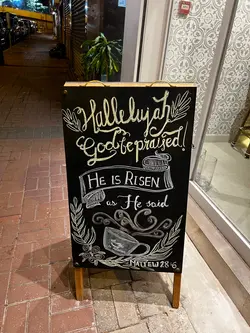 Hallelujah
God be praised!
HE IS RISEN
as He said
MATTEW 28:6